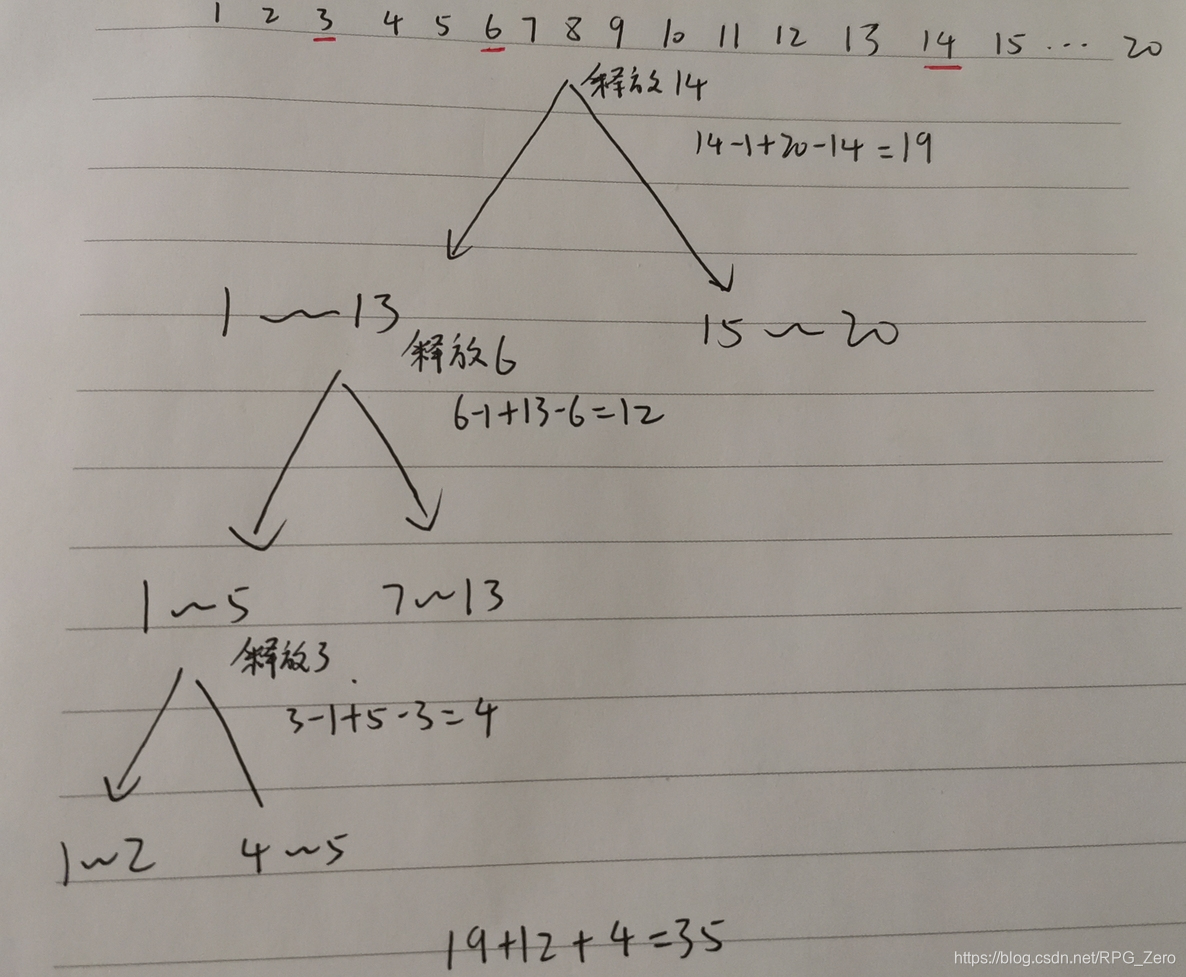 1 2 3 4 5 6 7 8 9 10 11 12 13 14 15 ... 20
释放14
14-1+20-14=19
1~13
15~20
释放6
6-1+13-6=12
1~5 7~13
释放3
3-1+5-3=4
1~2 4~5
19+12+4=35
https://blog.csdn.net/RPG_Zero